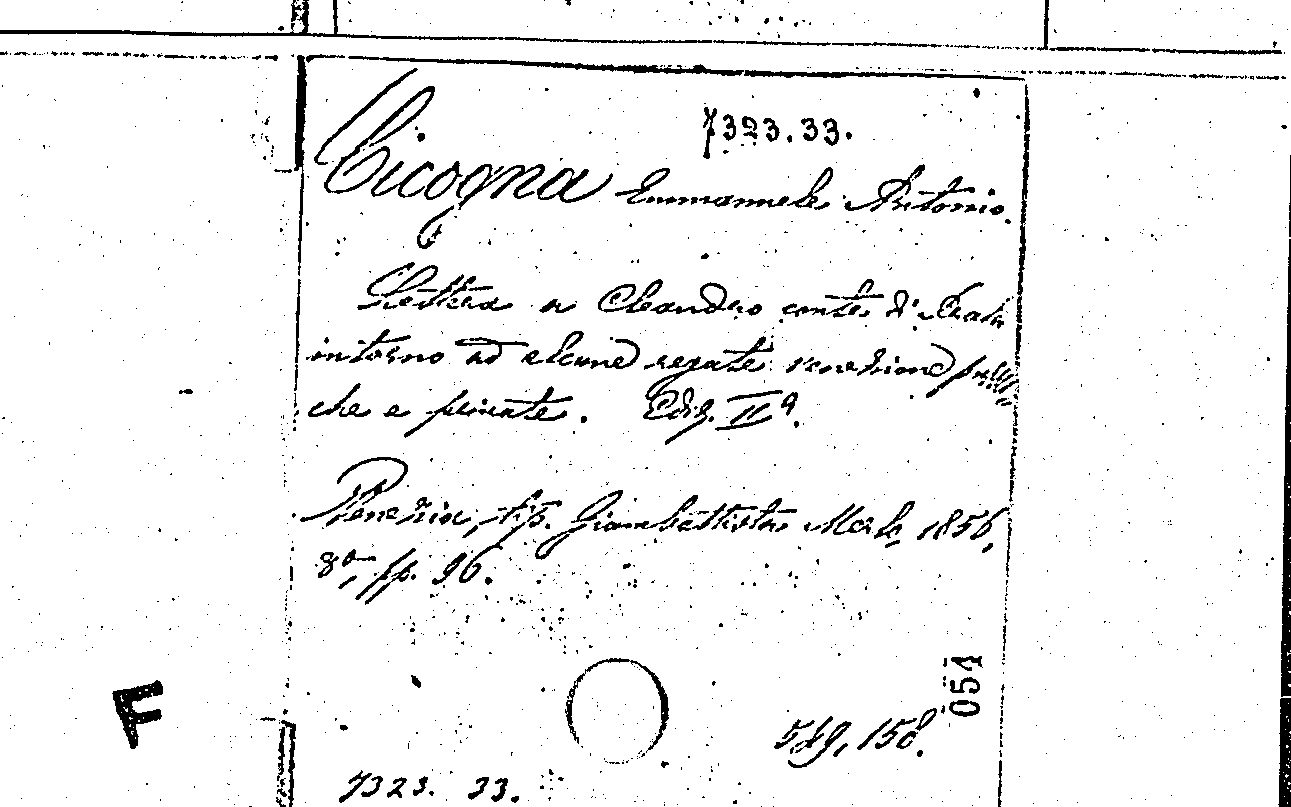 7323.33.
Cicogna Emmanuele Antonio.
Lettera a Cleandro conte di Prata
intorno ad alcune regate veneziane pubbli-
che e private. Ediz. IIª.
Venezia, tip. Giambattista Merlo, 1856,
8º, pp. 96.
054
F
158.
7323. 33.